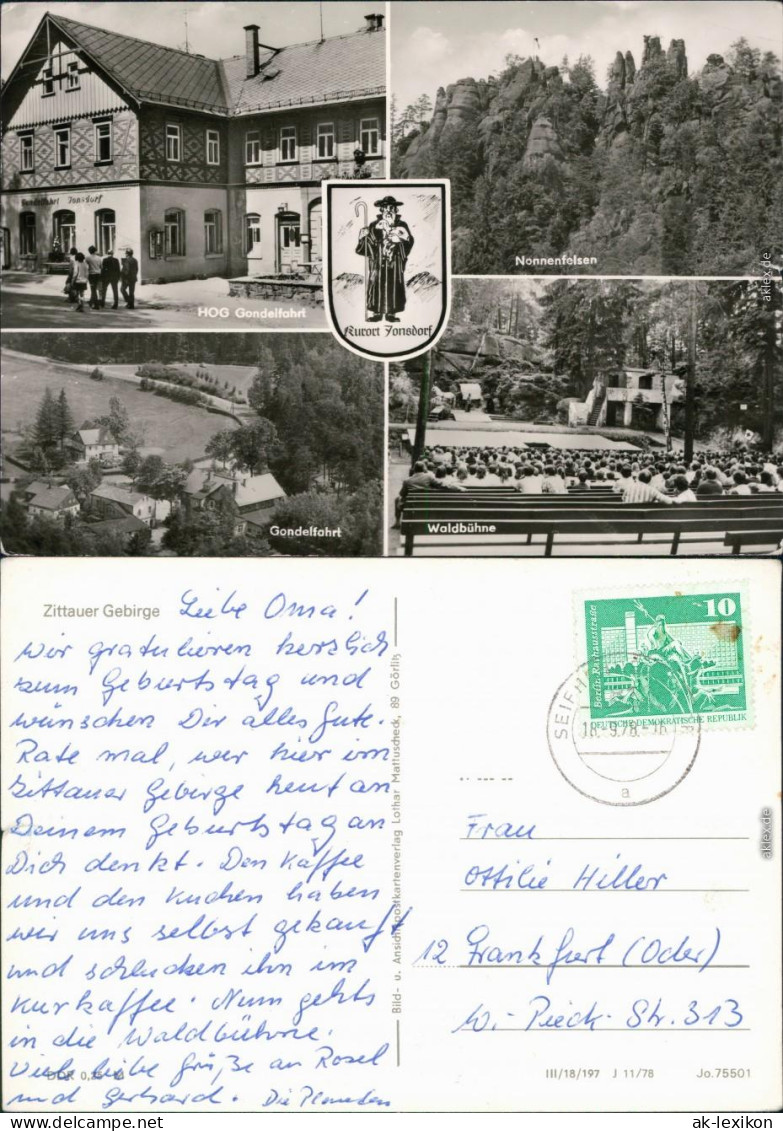 Gondelfahrt Jonsdorf
HOG Gondelfahrt
Nonnenfelsen
Kurort Jonsdorf
Gondelfahrt
Waldbühne
aklex.de
Zittauer Gebirge
Liebe Oma!
wir gratulieren herzlich
zum Geburtstag und
wünschen Dir alles Gute.
Rate mal, wer hier im
Zittauer Gebirge heut an
Deinem Geburtstag an
Dich denkt. Den Kaffee
und den Kuchen haben
wir uns selbst gekauft
und schlucken ihn im
Kurkaffee. Nun gehts
in die Waldbühne.
Viele liebe Grüße an Rosel
und Gerhard. Die
DDR 0,25 M
Bild- u. Ansichtspostkartenverlag Lothar Mattuscheck, 89 Görlitz
10
Berlin, Rathausstraße
DEUTSCHE DEMOKRATISCHE REPUBLIK
SEIFH
18.-9.78.-16
a
Frau
Ottilie Hiller
12 Frankfurt (Oder)
W.-Pieck-Str. 313
III/18/197 J 11/78 Jo.75501
aklex.de
ak-lexikon